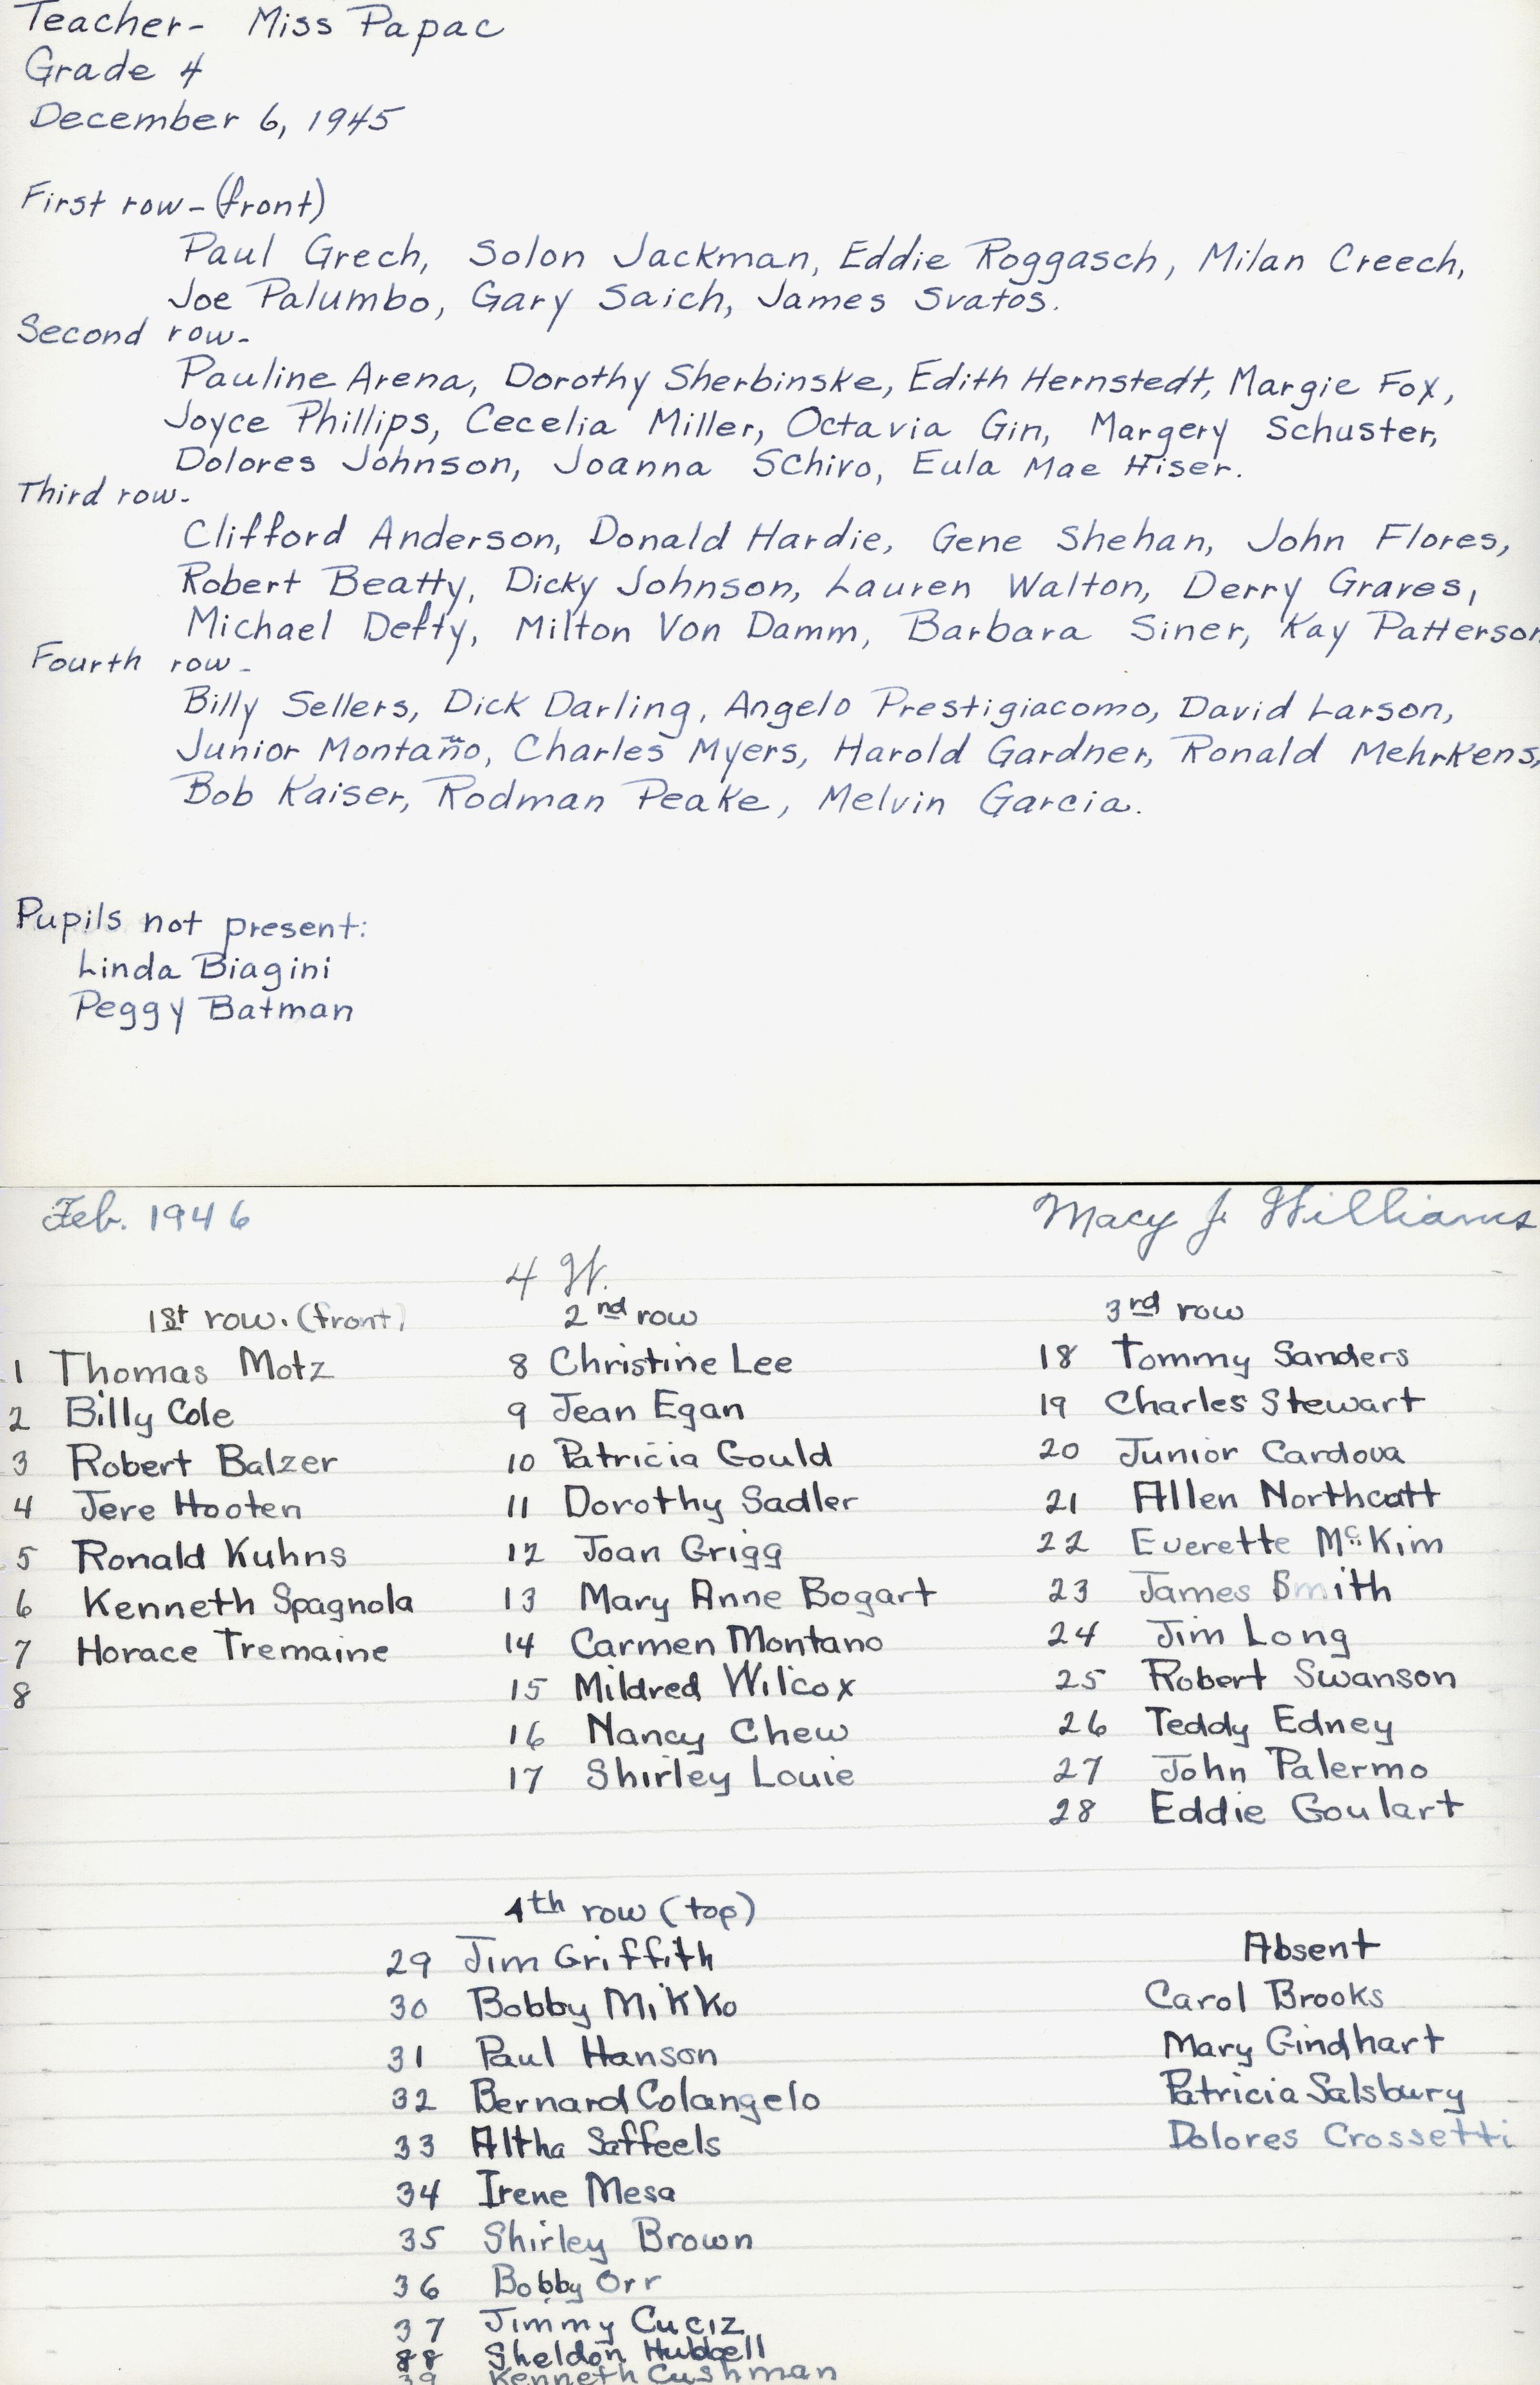 Teacher- Miss Papac
Grade 4
December 6, 1945
First row-(front)
Paul Grech, Solon Jackman, Eddie Roggasch, Milan Creech,
Joe Palumbo, Gary Saich, James Svatos.
Second row-
Pauline Arena, Dorothy Sherbinske, Edith Hernstedt, Margie Fox,
Joyce Phillips, Cecelia Miller, Octavia Gin, Margery Schuster,
Dolores Johnson, Joanna Schiro, Eula Mae Hiser.
Third row-
Clifford Anderson, Donald Hardie, Gene Shehan, John Flores,
Robert Beatty, Dicky Johnson, Lauren Walton, Derry Graves,
Michael Defty, Milton Von Damm, Barbara Siner, Kay Patterson
Fourth row-
Billy Sellers, Dick Darling, Angelo Prestigiacomo, David Larson,
Junior Montaño, Charles Myers, Harold Gardner, Ronald Mehrkens,
Bob Kaiser, Rodman Peake, Melvin Garcia.
Pupils not present:
Linda Biagini
Peggy Batman
Feb. 1946
Macy J. Williams
4 W.
1st row. (front)
1 Thomas Motz
2 Billy Cole
3 Robert Balzer
4 Jere Hooten
5 Ronald Kuhns
6 Kenneth Spagnola
7 Horace Tremaine
8
2nd row
8 Christine Lee
9 Jean Egan
10 Patricia Gould
11 Dorothy Sadler
12 Joan Grigg
13 Mary Anne Bogart
14 Carmen Montano
15 Mildred Wilcox
16 Nancy Chew
17 Shirley Louie
3rd row
18 Tommy Sanders
19 Charles Stewart
20 Junior Cardova
21 Allen Northcutt
22 Everette McKim
23 James Smith
24 Jim Long
25 Robert Swanson
26 Teddy Edney
27 John Palermo
28 Eddie Goulart
4th row (top)
29 Jim Griffith
30 Bobby Mikko
31 Paul Hanson
32 Bernard Colangelo
33 Altha Saffeels
34 Irene Mesa
35 Shirley Brown
36 Bobby Orr
37 Jimmy Cuciz
38 Sheldon Hubbell
39 Kenneth Cushman
Absent
Carol Brooks
Mary Gindhart
Patricia Salsbury
Dolores Crossetti